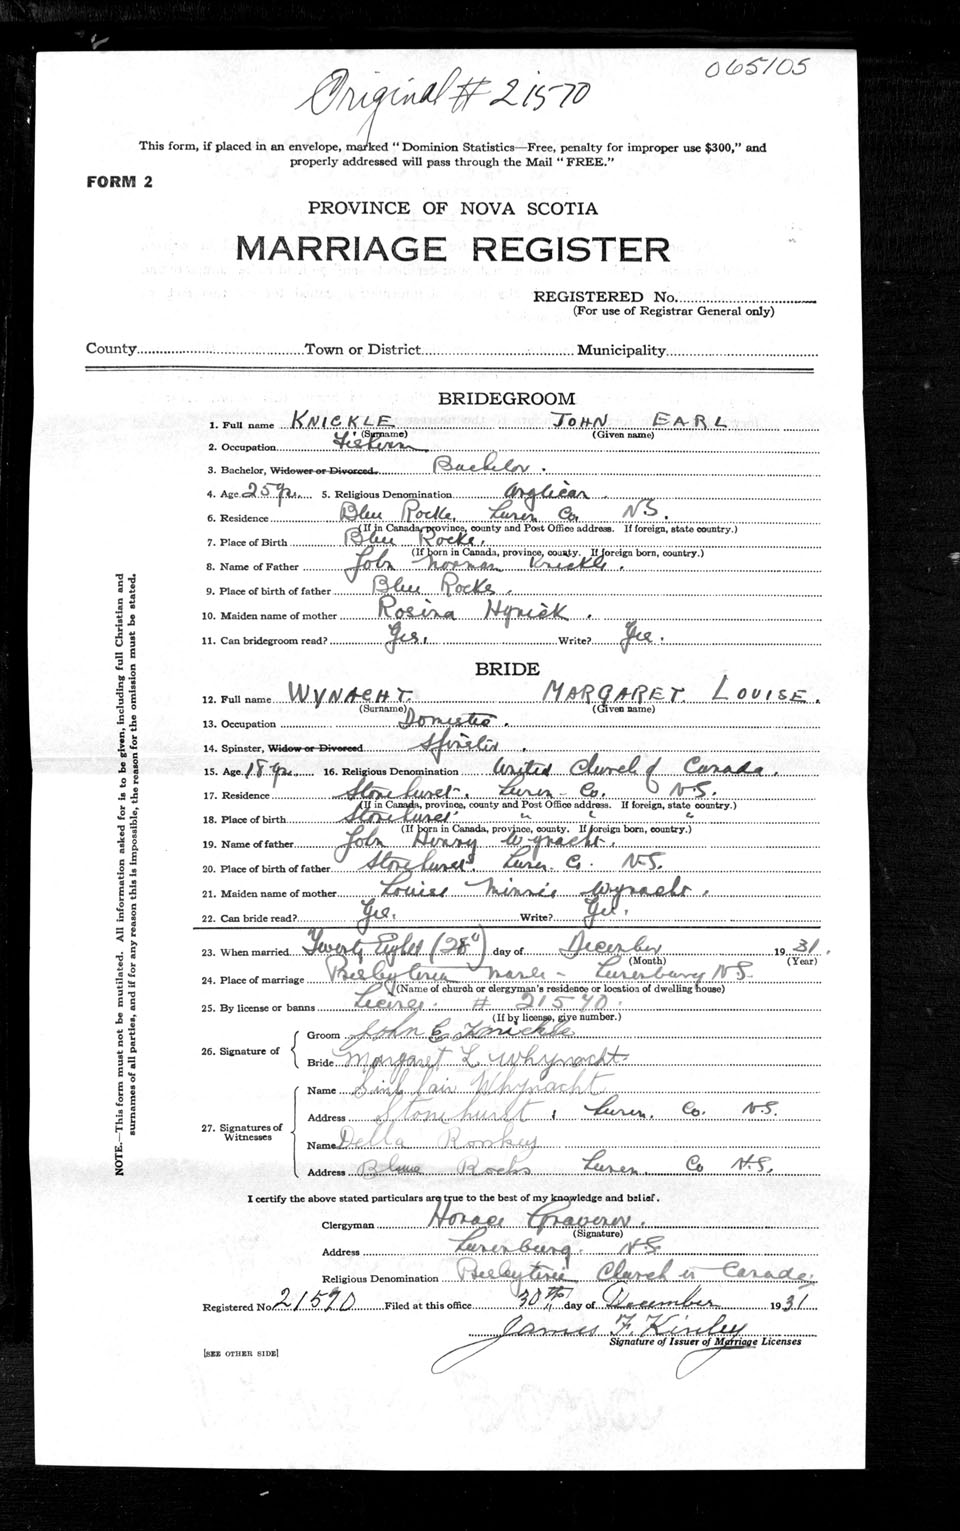 065105
Original # 21570
This form, if placed in an envelope, marked "Dominion Statistics—Free, penalty for improper use $300," and
properly addressed will pass through the Mail "FREE."
FORM 2
PROVINCE OF NOVA SCOTIA
MARRIAGE REGISTER
REGISTERED No.
(For use of Registrar General only)
County Town or District Municipality
BRIDEGROOM
1. Full name KNICKLE JOHN EARL
(Surname) (Given name)
2. Occupation
3. Bachelor, Widower or Divorced. Bachelor.
4. Age 25 yrs. 5. Religious Denomination Anglican.
6. Residence Blue Rocks, Lunen. Co. N.S.
(If in Canada, province, county and Post Office address. If foreign, state country.)
7. Place of Birth Blue Rocks.
(If born in Canada, province, county. If foreign born, country.)
8. Name of Father John Norman Knickle.
9. Place of birth of father Blue Rocks.
10. Maiden name of mother Rosina
11. Can bridegroom read? Yes. Write? Yes.
BRIDE
12. Full name WYNACHT. MARGARET. LOUISE.
(Surname) (Given name)
13. Occupation Domestic.
14. Spinster, Widow or Divorced Spinster.
15. Age 18 yrs. 16. Religious Denomination United Church of Canada.
17. Residence Stonehurst, Lunen. Co. N.S.
(If in Canada, province, county and Post Office address. If foreign, state country.)
18. Place of birth Stonehurst " " "
(If born in Canada, province, county. If foreign born, country.)
19. Name of father John Henry Wynacht.
20. Place of birth of father Stonehurst, Lunen. Co. N.S.
21. Maiden name of mother Louise Minnie Wynacht.
22. Can bride read? Yes. Write? Yes.
23. When married Twenty Eight (28") day of December 1931.
(Month) (Year)
24. Place of marriage Presbyterian Manse - Lunenburg N.S.
(Name of church or clergyman's residence or location of dwelling house)
25. By license or banns License. # 21570.
(If by license, give number.)
26. Signature of
Groom John E Knickle
Bride Margaret L Whynacht
27. Signatures of Witnesses
Name Sinclair Whynacht
Address Stonehurst, Lunen. Co. N.S.
Name Della Romkey
Address Blue Rocks Lunen. Co N.S.
I certify the above stated particulars are true to the best of my knowledge and belief.
Clergyman Horace
(Signature)
Address Lunenburg. N.S.
Religious Denomination Presbyterian Church in Canada.
Registered No. 21570 Filed at this office 30th day of December 1931
James F. Kinley
Signature of Issuer of Marriage Licenses
[SEE OTHER SIDE]
NOTE.—This form must not be mutilated. All information asked for is to be given, including full Christian and
surnames of all parties, and if for any reason this is impossible, the reason for the omission must be stated.